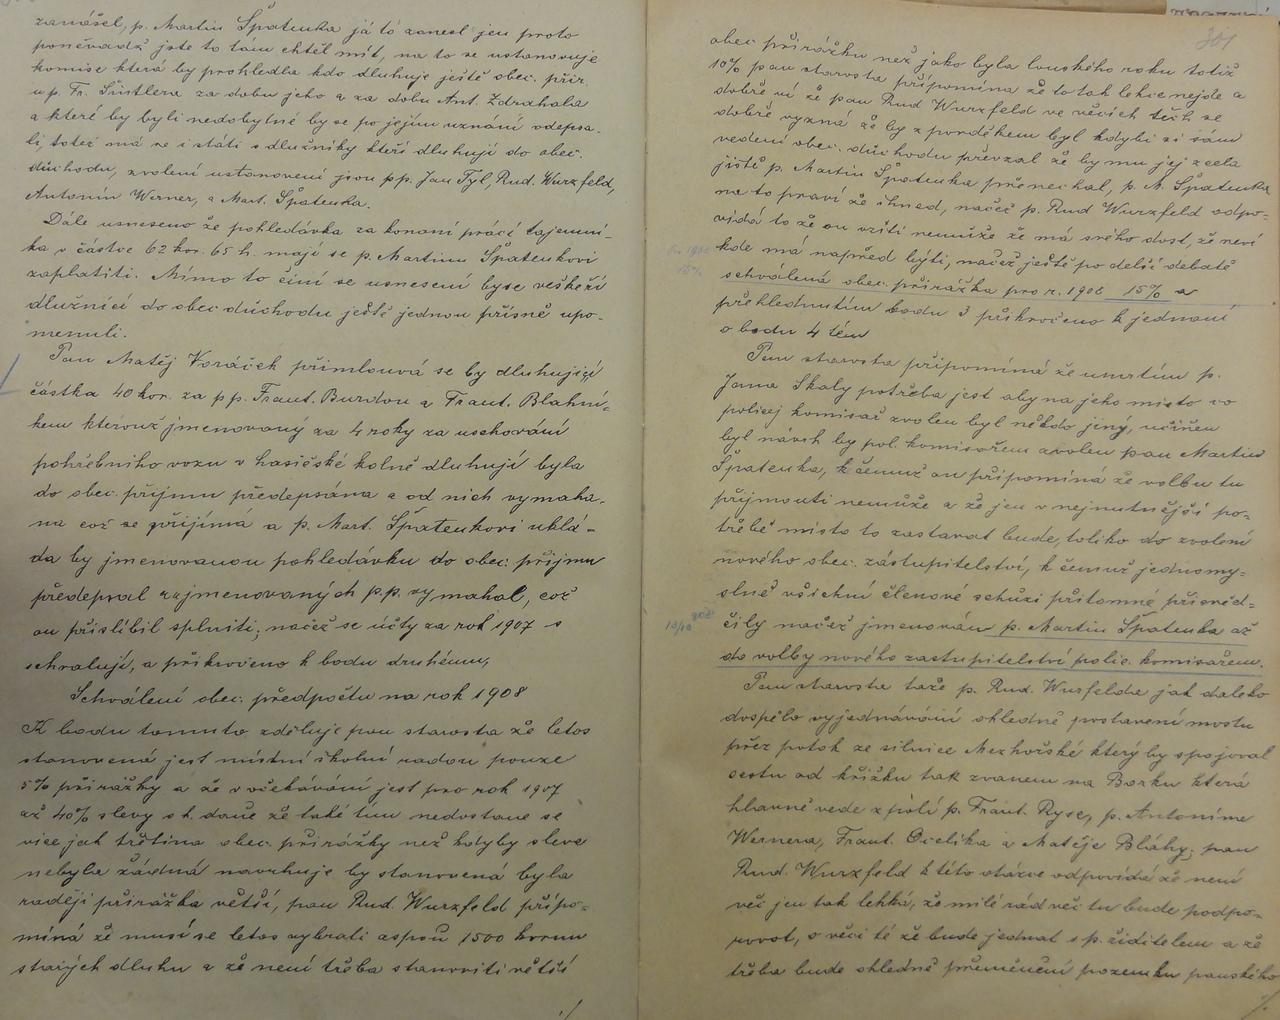 zanášel, p. Martin Špatenka já to zanesl jen proto
poněvadž jste to tam chtěl mít, na to se ustanovuje
komise která by prohledla kdo dluhuje ještě obec. přir.
u p. Fr. Šustlera za dobu jeho a za dobu Ant. Zdrahala
a které by byli nedobytné by se po jejím uznání odepsa-
li, totéž má se i státi s dlužníky kteří dluhují do obec.
důchodu, zvoleni ustanoveni jsou pp. Jan Tyl, Rud. Wurzfeld,
Antonín Werner, a Mart. Špatenka.
Dále usneseno že pohledávka za konaní prácí tajemní-
ka v částce 62 kor. 65 h. mají se p. Martinu Špatenkovi
zaplatiti. Mimo to činí se usnesení by se veškeří
dlužníci do obec důchodu ještě jednou přísně upo-
menuli.
Pan Matěj Voráček přimlouvá se by dluhující
částka 40 kor. za pp. Frant. Burdou a Frant. Blahní-
kem kterouž jmenovaný za 4 roky za uschování
pohřebního vozu v hasičské kolně dluhují byla
do obec. příjmu předepsána a od nich vymáhá-
na což se přijímá a p. Mart. Špatenkovi uklá-
dá by jmenovanou pohledávku do obec. příjmu
předepsal a zjmenovaných p.p. vymáhal, což
on přislíbil splniti, načež se účty za rok 1907 s
schvalují, a přikročeno k bodu druhému,
Schválení obec. předpočtu na rok 1908
K bodu tomuto zděluje pan starosta že letos
stanovená jest místní školní radou pouze
5% přirážky a že v očekávání jest pro rok 1907
až 40% slevy s t. daně že také tím nedostane se
více jak třetina obec. přirážky než kdyby sleva
nebyla žádná navrhuje by stanovená byla
raději přirážka větší, pan Rud Wurzfeld připo-
míná že musí se letos vybrati aspoň 1500 korun
starých dluhu a že není třeba stanoviti větší
./.
301
obec přirážku než jako byla loňského roku totiž
10% pan starosta připomíná že to tak lehce nejde a
dobře ví že pan Rud Wurzfeld ve věcích těch se
dobře vyzná že by z povděkem byl kdyby si sám
vedení obec. důchodu převzal že by mu jej zcela
jistě p. Martin Špatenka přenechal, p. M. Špatenka
na to praví že ihned, načež p. Rud Wurzfeld odpo-
vídá to že on vzíti nemůže že má svého dost, že neví
kde má napřed býti, načež ještě po delší debatě
schválená obec. přirážka pro r. 1908 15% a
15%
přehlednutím bodu 3 přikročeno k jednání
o bodu 4 tém
Pan starosta připomíná že úmrtím p.
Jana Skaly potřeba jest aby na jeho místo co
policej komisař zvolen byl někdo jiný, učiněn
byl návrh by pol. komisařem zvolen pan Martin
Špatenka, k čemuž on připomíná že volbu tu
přijmouti nemůže a že jen v nejnutnější po-
třebě místo to zastávat bude, toliko do zvolení
nového obec. zástupitelství, k čemuž jednomy-
slně všichni členové schůzi přítomné přisvěd-
čily načež jmenován p. Martin Špatenka až
do volby nového zastupitelství polic. komisařem.
Pan starosta táže p. Rud. Wurzfelda jak daleko
dospělo vyjednávání ohledně postavení mostu
přez potok ze silnice Mezhořské který by spojoval
cestu od křížku tak zvanem na Borku která
hlavně vede z polí p. Frant. Ryse, p. Antonína
Wernera, Frant. Ocelíka a Matěje Bláhy; pan
Rud. Wurzfeld k této otázce odpovídá že není
věc jen tak lehká, že milé rád věc tu bude podpo-
rovat, o věci té že bude jednat s p. řiditelem a že
třeba bude ohledně přeměnění pozemku panského
./.